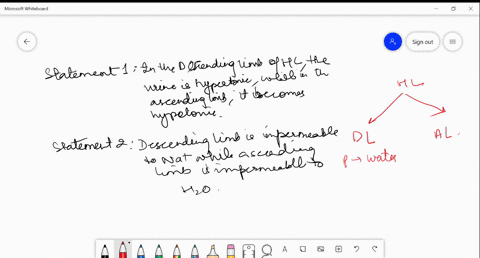 Microsoft Whiteboard
Sign out
Statement 1: In the Descending limb of HL, the
urine is hypertonic, while in the
ascending limb, it becomes
hypotonic.
Statement 2: Descending limb is impermeable
to Na+ while ascending
limb is impermeable to
H2O.
HL
DL
AL.
P → water